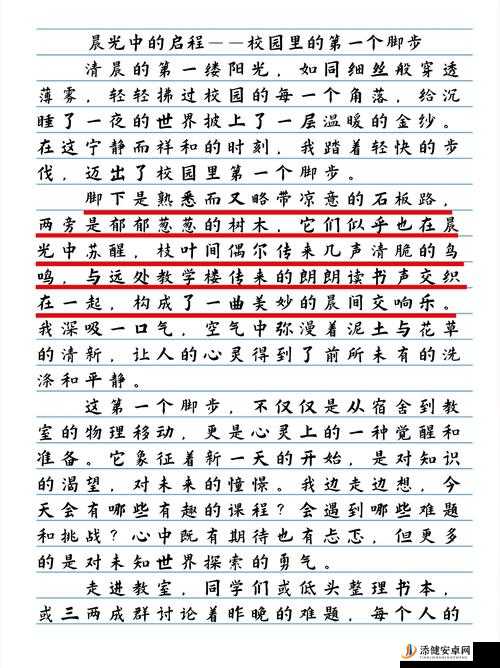 晨光中的启程——校园里的第一个脚步
清晨的第一缕阳光，如同细丝般穿透
薄雾，轻轻拂过校园的每一个角落，给沉
睡了一夜的世界披上了一层温暖的金纱。
在这宁静而祥和的时刻，我踏着轻快的步
伐，迈出了校园里第一个脚步。
脚下是熟悉而又略带凉意的石板路，
两旁是郁郁葱葱的树木，它们似乎也在晨
光中苏醒，枝叶间偶尔传来几声清脆的鸟
鸣，与远处教学楼传来的朗朗读书声交织
在一起，构成了一曲美妙的晨间交响乐。
我深吸一口气，空气中弥漫着泥土与花草
的清新，让人的心灵得到了前所未有的洗
涤和平静。
这第一个脚步，不仅仅是从宿舍到教
室的物理移动，更是心灵上的一种觉醒和
准备。它象征着新一天的开始，是对知识
的渴望，对未来的憧憬。我边走边想，今
天会有哪些有趣的课程？会遇到哪些难题
和挑战？心中既有期待也有忐忑，但更多
的是对未知世界探索的勇气。
走进教室，同学们或低头整理书本，
或三两成群讨论着昨晚的难题，每个人的
添健安卓网